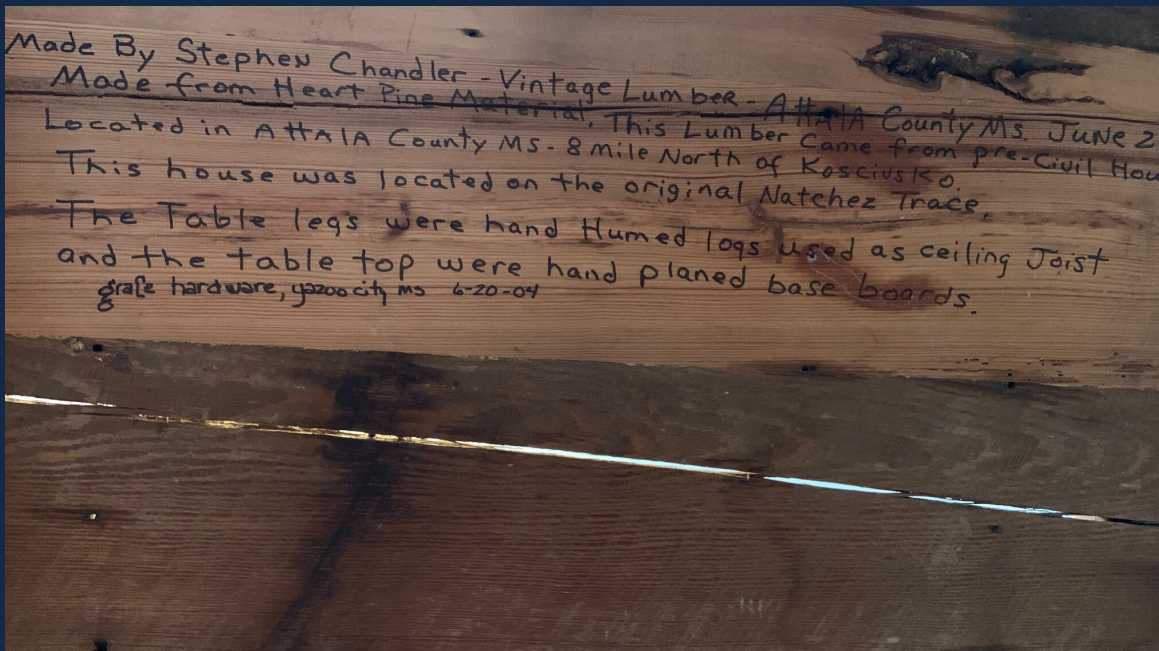 Made By Stephen Chandler - Vintage Lumber - AttAlA County Ms. JuNe 2
Made from Heart Pine Material. This Lumber Came from pre-Civil Hou
Located in AttAlA County MS - 8 mile North of Kosciusko.
This house was located on the original Natchez Trace.
The Table legs were hand Humed logs used as ceiling Joist
and the table top were hand planed base boards.
hardware, yazoo city ms 6-20-04